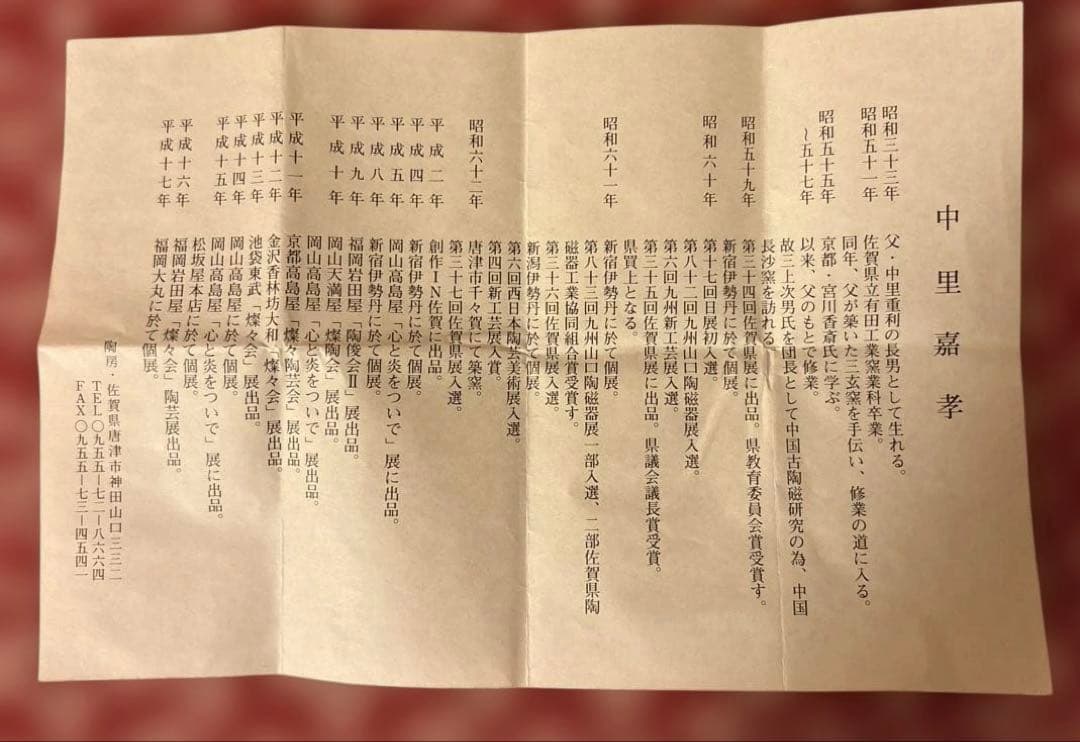 中里嘉孝
昭和三十三年　父・中里重利の長男として生れる。
昭和五十一年　佐賀県立有田工業窯業科卒業。
同年、父が築いた三玄窯を手伝い、修業の道に入る。
昭和五十五年　京都・宮川香斎氏に学ぶ。
～五十七年　以来、父のもとで修業。
故三上次男氏を団長として中国古陶磁研究の為、中国
長沙窯を訪れる。
昭和五十九年　第三十四回佐賀県展に出品。県教育委員会賞受賞す。
新宿伊勢丹に於て個展。
昭和六十年　第十七回日展初入選。
第八十二回九州山口陶磁器展入選。
第六回九州新工芸展入選。
第三十五回佐賀県展に出品。県議会議長賞受賞。
県買上となる。
昭和六十一年　新宿伊勢丹に於て個展。
第八十三回九州山口陶磁器展一部入選、二部佐賀県陶
磁器工業協同組合賞受賞す。
第三十六回佐賀県展入選。
新潟伊勢丹に於て個展。
第六回西日本陶芸美術展入選。
第四回新工芸展入賞。
昭和六十二年　唐津市千々賀にて築窯。
第三十七回佐賀県展入選。
平成二年　創作IN佐賀に出品。
平成四年　新宿伊勢丹に於て個展。
平成五年　岡山高島屋「心と炎をついで」展に出品。
平成八年　新宿伊勢丹に於て個展。
平成九年　福岡岩田屋「陶俊会Ⅱ」展出品。
平成十年　岡山天満屋「燦陶会」展出品。
岡山高島屋「心と炎をついで」展出品。
平成十一年　京都高島屋「燦々陶芸会」展出品。
平成十二年　金沢香林坊大和「燦々会」展出品。
平成十三年　池袋東武「燦々会」展出品。
平成十四年　岡山高島屋に於て個展。
平成十五年　岡山高島屋「心と炎をついで」展に出品。
松坂屋本店に於て個展。
平成十六年　福岡岩田屋「燦々会」陶芸展出品。
平成十七年　福岡大丸に於て個展。
陶房・佐賀県唐津市神田山口三三二
TEL〇九五五―七二―八六六四
FAX〇九五五―七三―四五四一